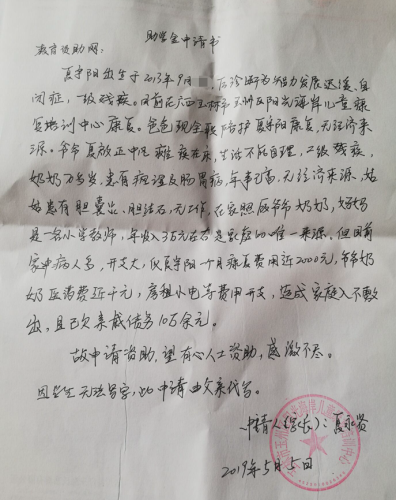 助学生申请书
教育资助网:
夏宇阳出生于2013年9月 后诊断为智力发展迟缓、自
闭症,一级残疾。目前在广西玉林市玉州区阳光海岸儿童康
复培训中心康复。爸爸现全职陪护夏宇阳康复,无经济来
源。爷爷夏放正中风瘫痪在床,生活不能自理,二级残疾,
奶奶 岁,患有 及肠胃病,年事已高,无经济来源,姑
姑患有胆囊炎、胆结石,无工作,在家照顾爷爷奶奶,妈妈
是一名小学教师,年收入3万元左右是家庭的唯一来源。但目前
家中病人多,开支大,仅夏宇阳一个月康复费用近2000元,爷爷奶
奶医药费近千元,房租水电等费用开支,造成家庭入不敷
出,且已欠亲戚债务10万余元。
故申请资助,望有心人士资助,感激不尽。
因学生无法写字,此申请由父亲代写。
申请人(家长):夏永贤
2019年5月5日